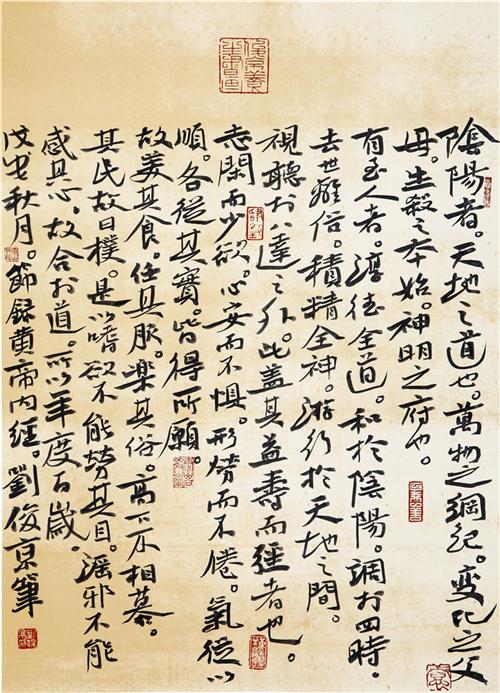 陰陽者。天地之道也。萬物之綱紀。變化之父
母。生殺之本始。神明之府也。
有至人者。淳德全道。和於陰陽。調扵四時。
去世離俗。積精全神。游行於天地之間。
視聽扵八達之外。此蓋其益壽而強者也。
志閑而少欲。心安而不懼。形勞而不倦。氣從以
順。各從其實。皆得所願。
故美其食。任其服。樂其俗。高下不相慕。
其民故曰樸。是以嗜欲不能勞其目。淫邪不能
惑其心。故合扵道。所以年度百歲。
戊戌秋月。節録黄帝内經。劉俊京筆